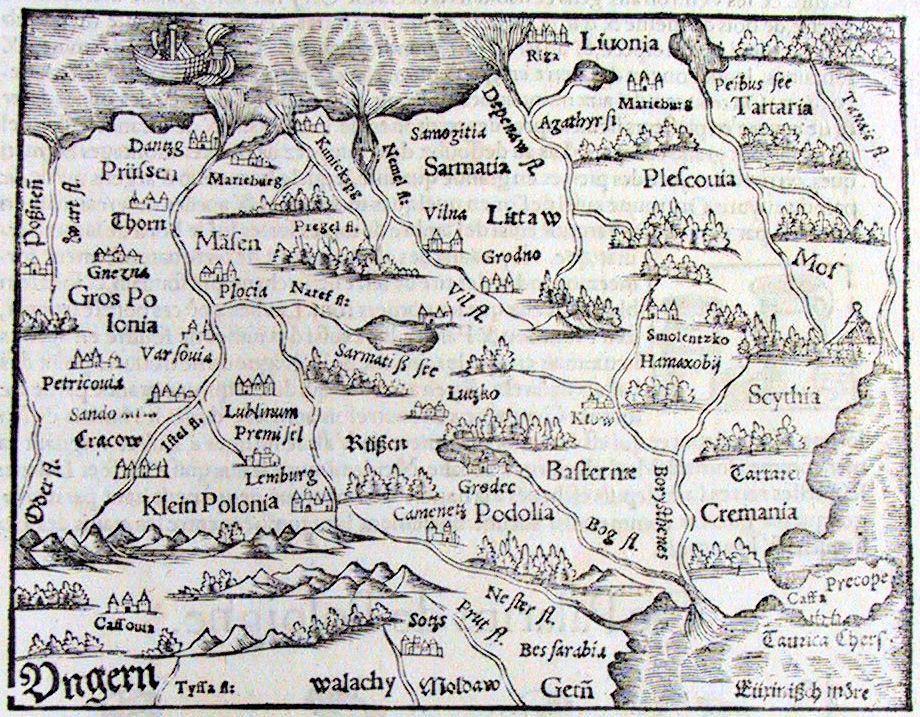 Riga
Liuonia
Peibus see
Tartaria
Tanais fl.
Marieburg
Agathyrsi
Depenaw fl.
Samogitia
Sarmatia
Plescouia
Dantzg
Prüssen
Marieburg
Kunickspg
Nemel fl.
Poßnen
Wart fl.
Thorn
Vilna
Littaw
Mäsen
Pregel fl.
Grodno
Mos
Gnezna
Gros Po
lonia
Plocia
Naref fl:
Vil fl.
Smolentzko
Hamaxobij
Varsouia
Sarmatiſſ see
Petricouia
Scythia
Lutzko
Kiow
Sando
Lublinum
Cracow
Istel fl.
Premisel
Rüßen
Basternæ
Tartare
Oder fl.
Lemburg
Grodec
Borysthenes
Klein Polonia
Camenetz
Podolia
Cremania
Bog fl.
Precope
Caffa
Nester fl.
Cassouia
Prut fl.
Taurica Chers
Bessarabia
Vngern
Tyssa fl:
walachy
Moldaw
Getñ
Euxinißch möre